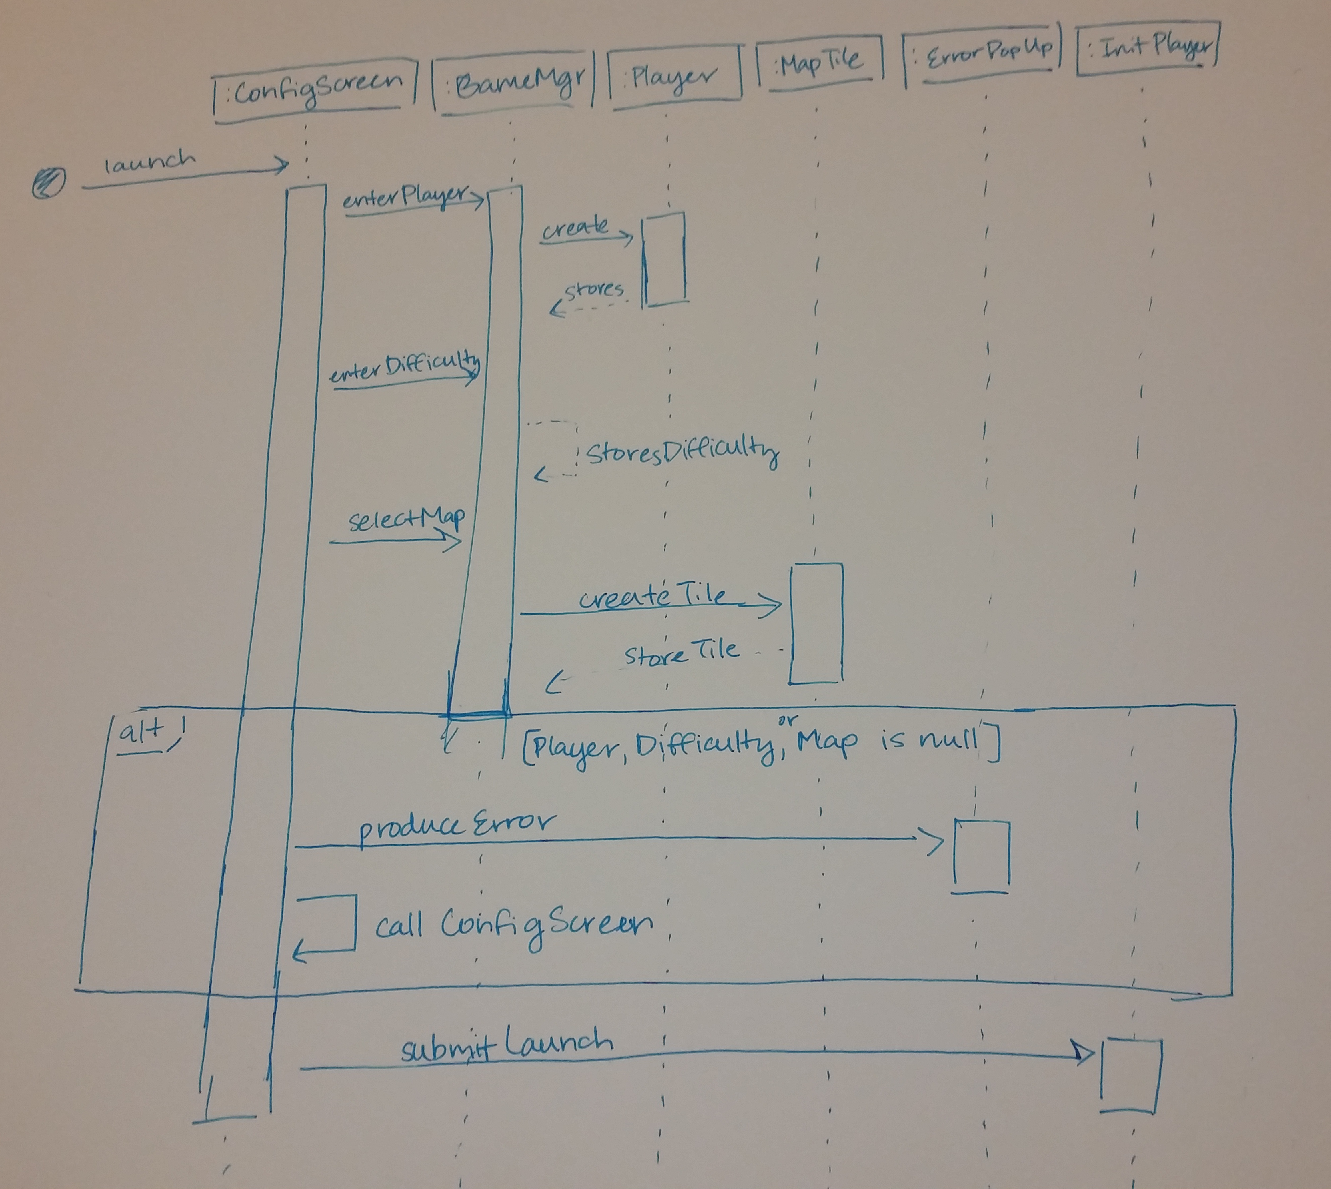 :ConfigScreen
:BameMgr
:Player
:MapTile
:ErrorPopUp
:InitPlayer
launch
enterPlayer
create
stores
enterDifficulty
storesDifficulty
selectMap
createTile
storeTile
alt
[Player, Difficulty, or Map is null]
produceError
call ConfigScreen
submitLaunch